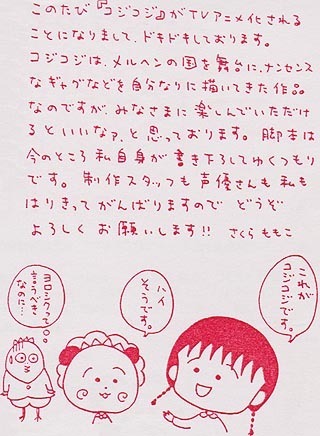 このたび『コジコジ』がTVアニメ化される
ことになりまして、ドキドキしております。
コジコジは、メルヘンの国を舞台に、ナンセンス
なギャグなどを自分なりに描いてきた作品
なのですが、みなさまに楽しんでいただけ
るといいなァ、と思っております。脚本は
今のところ私自身が書き下ろしてゆくつもり
です。制作スタッフも声優さんも私も
はりきってがんばりますので どうぞ
よろしくお願いします!! さくらももこ
これが
コジコジです。
ハイ
そうです。
ヨロシクって
なのに…